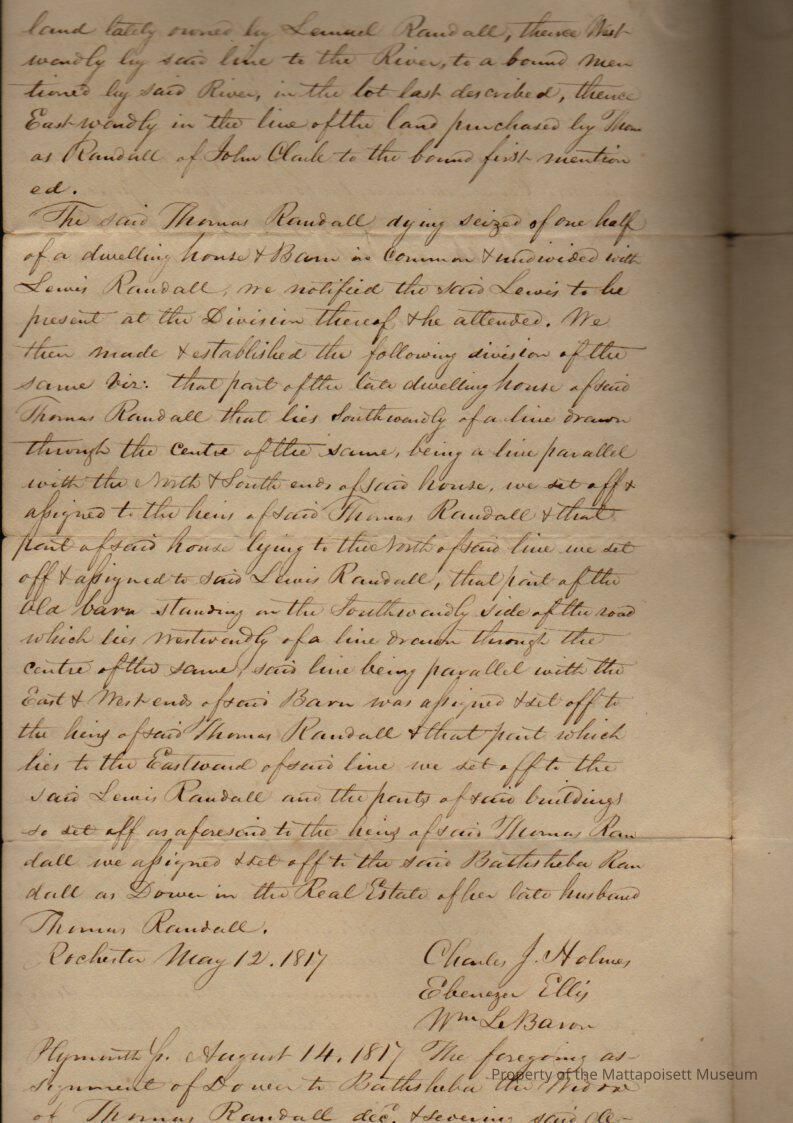 land lately owned by Lemuel Randall, thence West-
wardly by said line to the River, to a bound men
tioned by said River, in the lot last described, thence
Eastwardly in the line of the land purchased by Thom
as Randall of John Clark to the bound first mention
ed.
The said Thomas Randall dying seized of one half
of a dwelling house & Barn in common & undivided with
Lewis Randall, we notified the said Lewis to be
present at the Division thereof & he attended. We
then made & established the following division of the
same Viz: that part of the late dwelling house of said
Thomas Randall that lies Southwardly of a line drawn
through the centre of the same, being a line parallel
with the North & South ends of said house, we set off &
assigned to the heirs of said Thomas Randall & that
part of said house lying to the North of said line we set
off & assigned to said Lewis Randall, that part of the
old barn standing on the Southwardly side of the road
which lies westwardly of a line drawn through the
centre of the same, said line being parallel with the
East & West ends of said Barn was assigned & set off to
the heirs of said Thomas Randall & that part which
lies to the Eastward of said line we set off to the
said Lewis Randall and the parts of said buildings
so set off as aforesaid to the heirs of said Thomas Ran
dall we assigned & set off to the said Bathsheba Ran
dall as Dower in the Real Estate of her late husband
Thomas Randall.
Rochester May 12. 1817
Charles J. Holmes
Ebenezer Ellis
Wm LeBaron
Plymouth Ss. August 14. 1817 The foregoing as-
signment of Dower to Bathsheba the Widow
of Thomas Randall decd. & severing said
Property of the Mattapoisett Museum